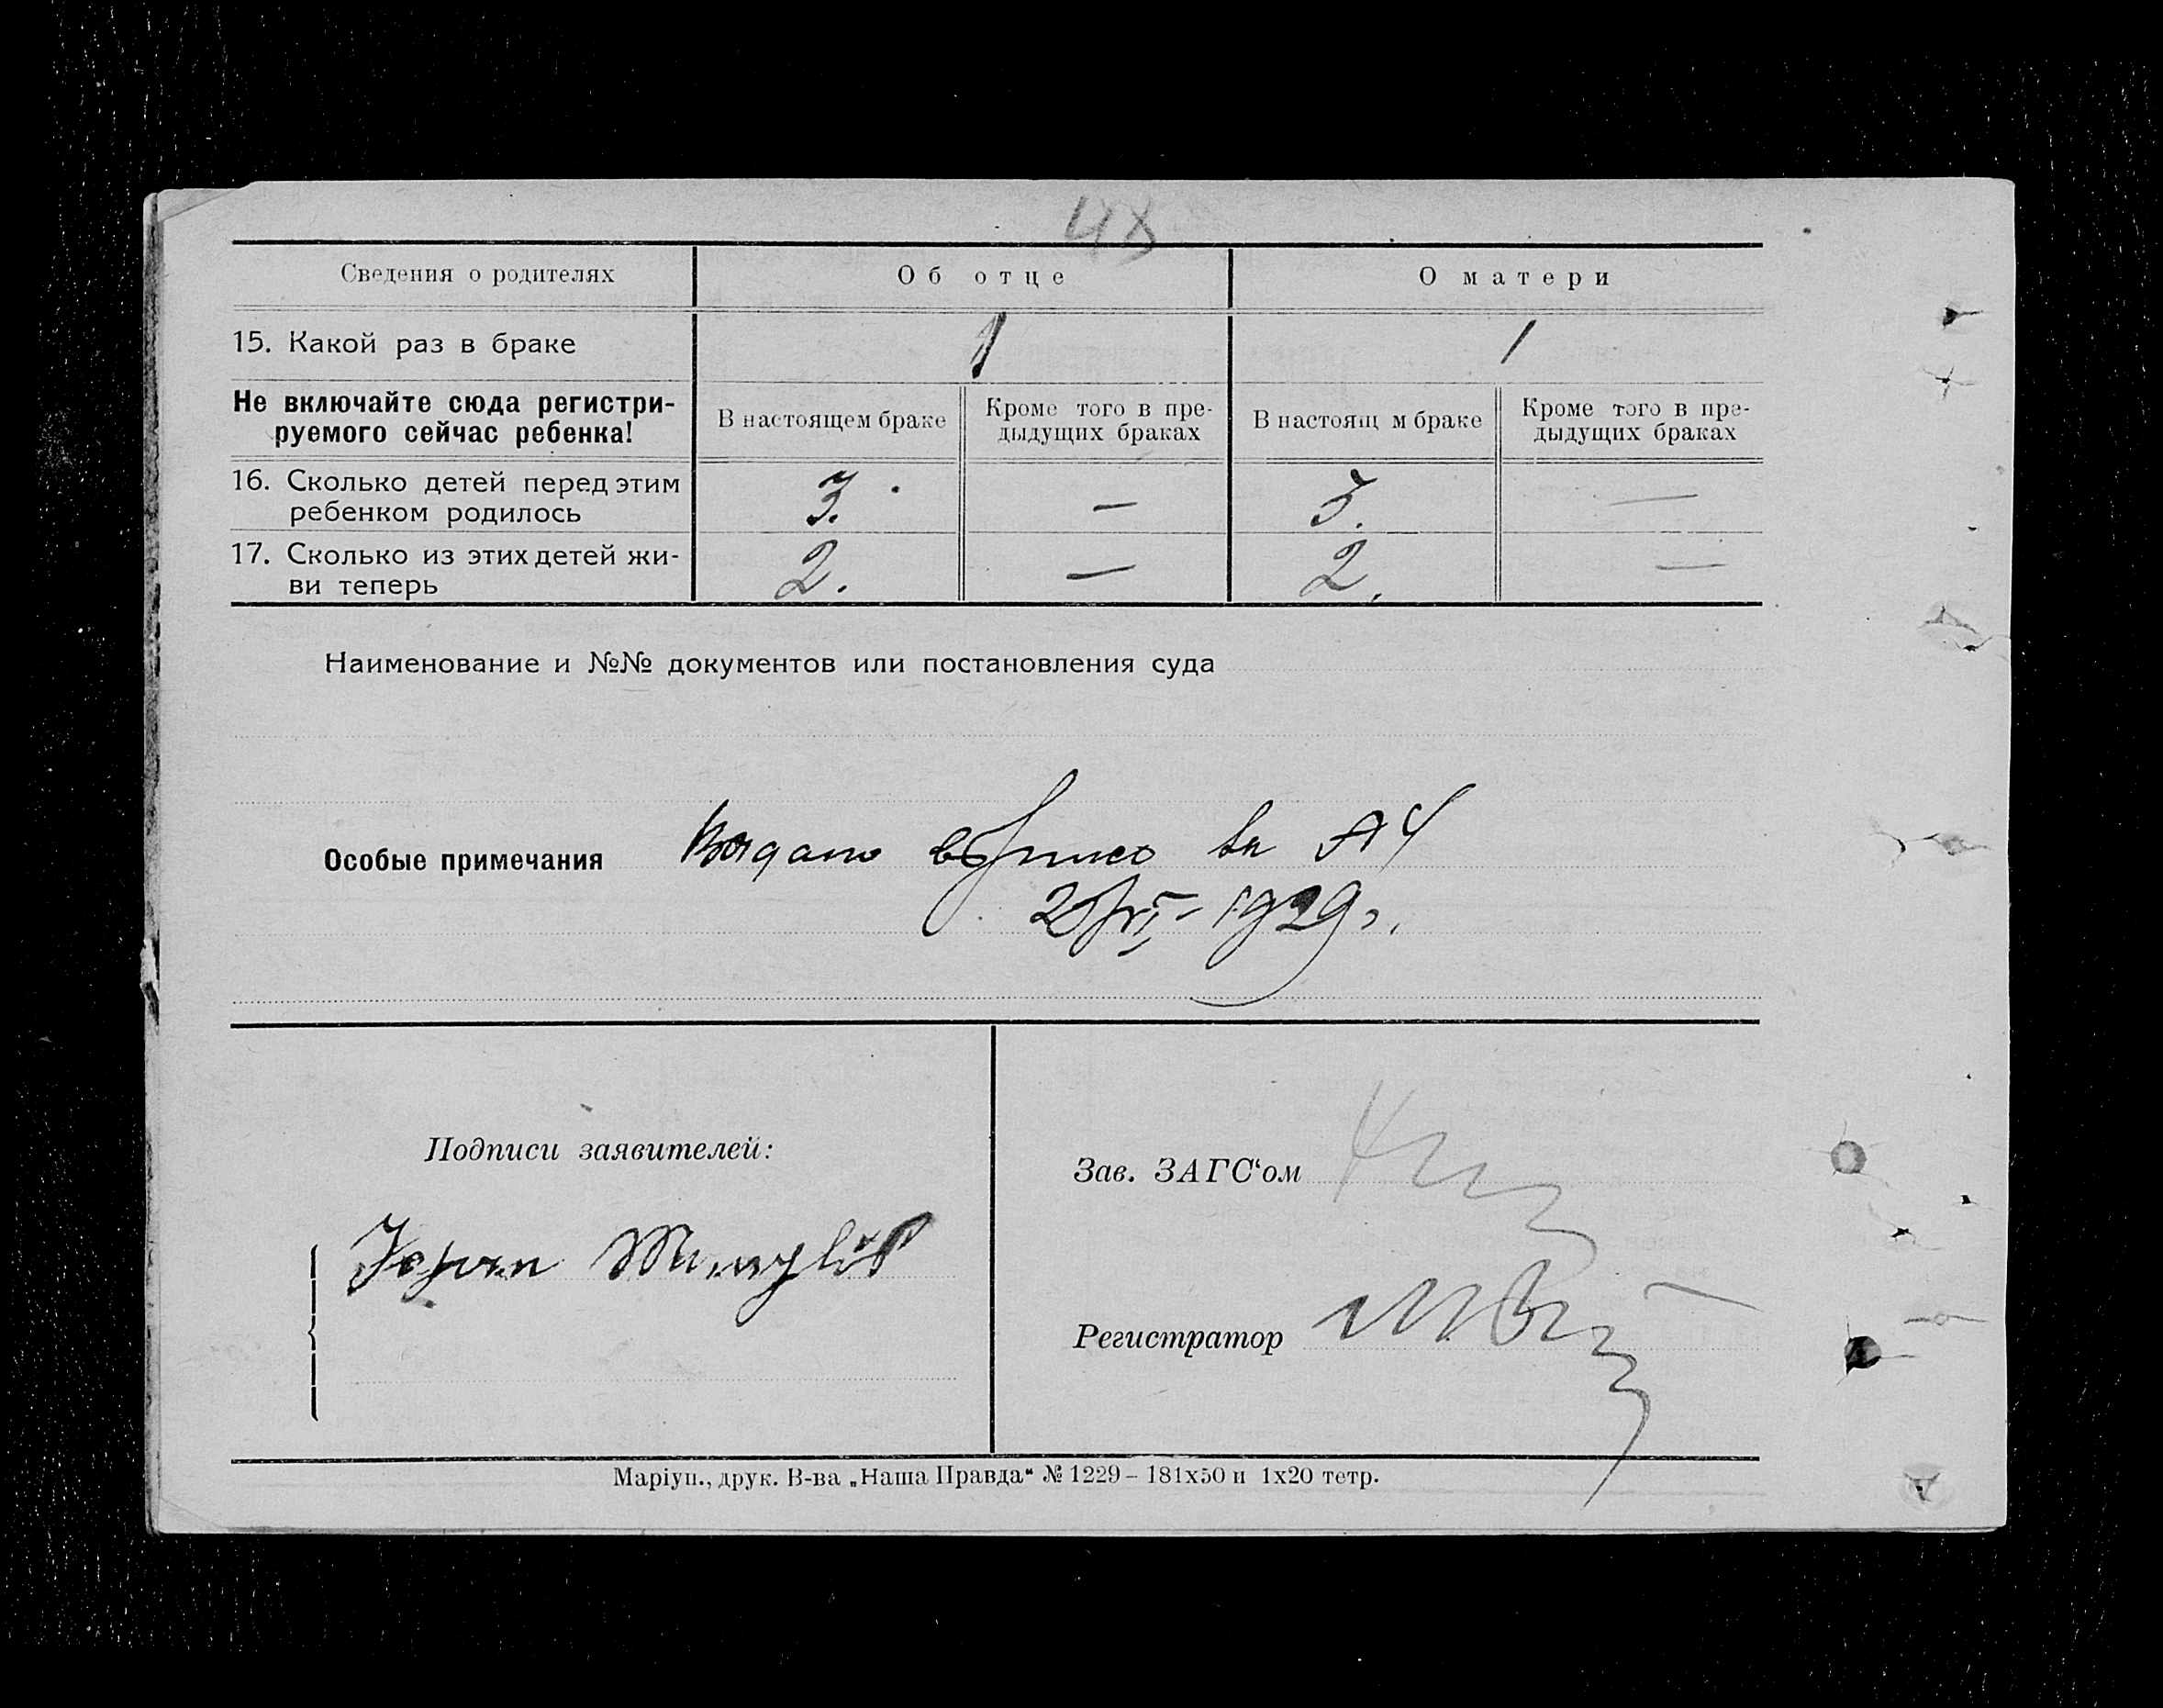 48
Сведения о родителях Об отце О матери
15. Какой раз в браке 1 1
Не включайте сюда регистри-
руемого сейчас ребенка!
В настоящем браке
Кроме того в пре-
дыдущих браках
В настоящ м браке
Кроме того в пре-
дыдущих браках
16. Сколько детей перед этим
ребенком родилось
3. — 3. —
17. Сколько из этих детей жи-
ви теперь
2. — 2. —
Наименование и №№ документов или постановления суда
Особые примечания
1929 г.
Подписи заявителей:
Зав. ЗАГС‘ом
Регистратор
Маріуп., друк. В-ва „Наша Правда“ № 1229 – 181х50 и 1х20 тетр.